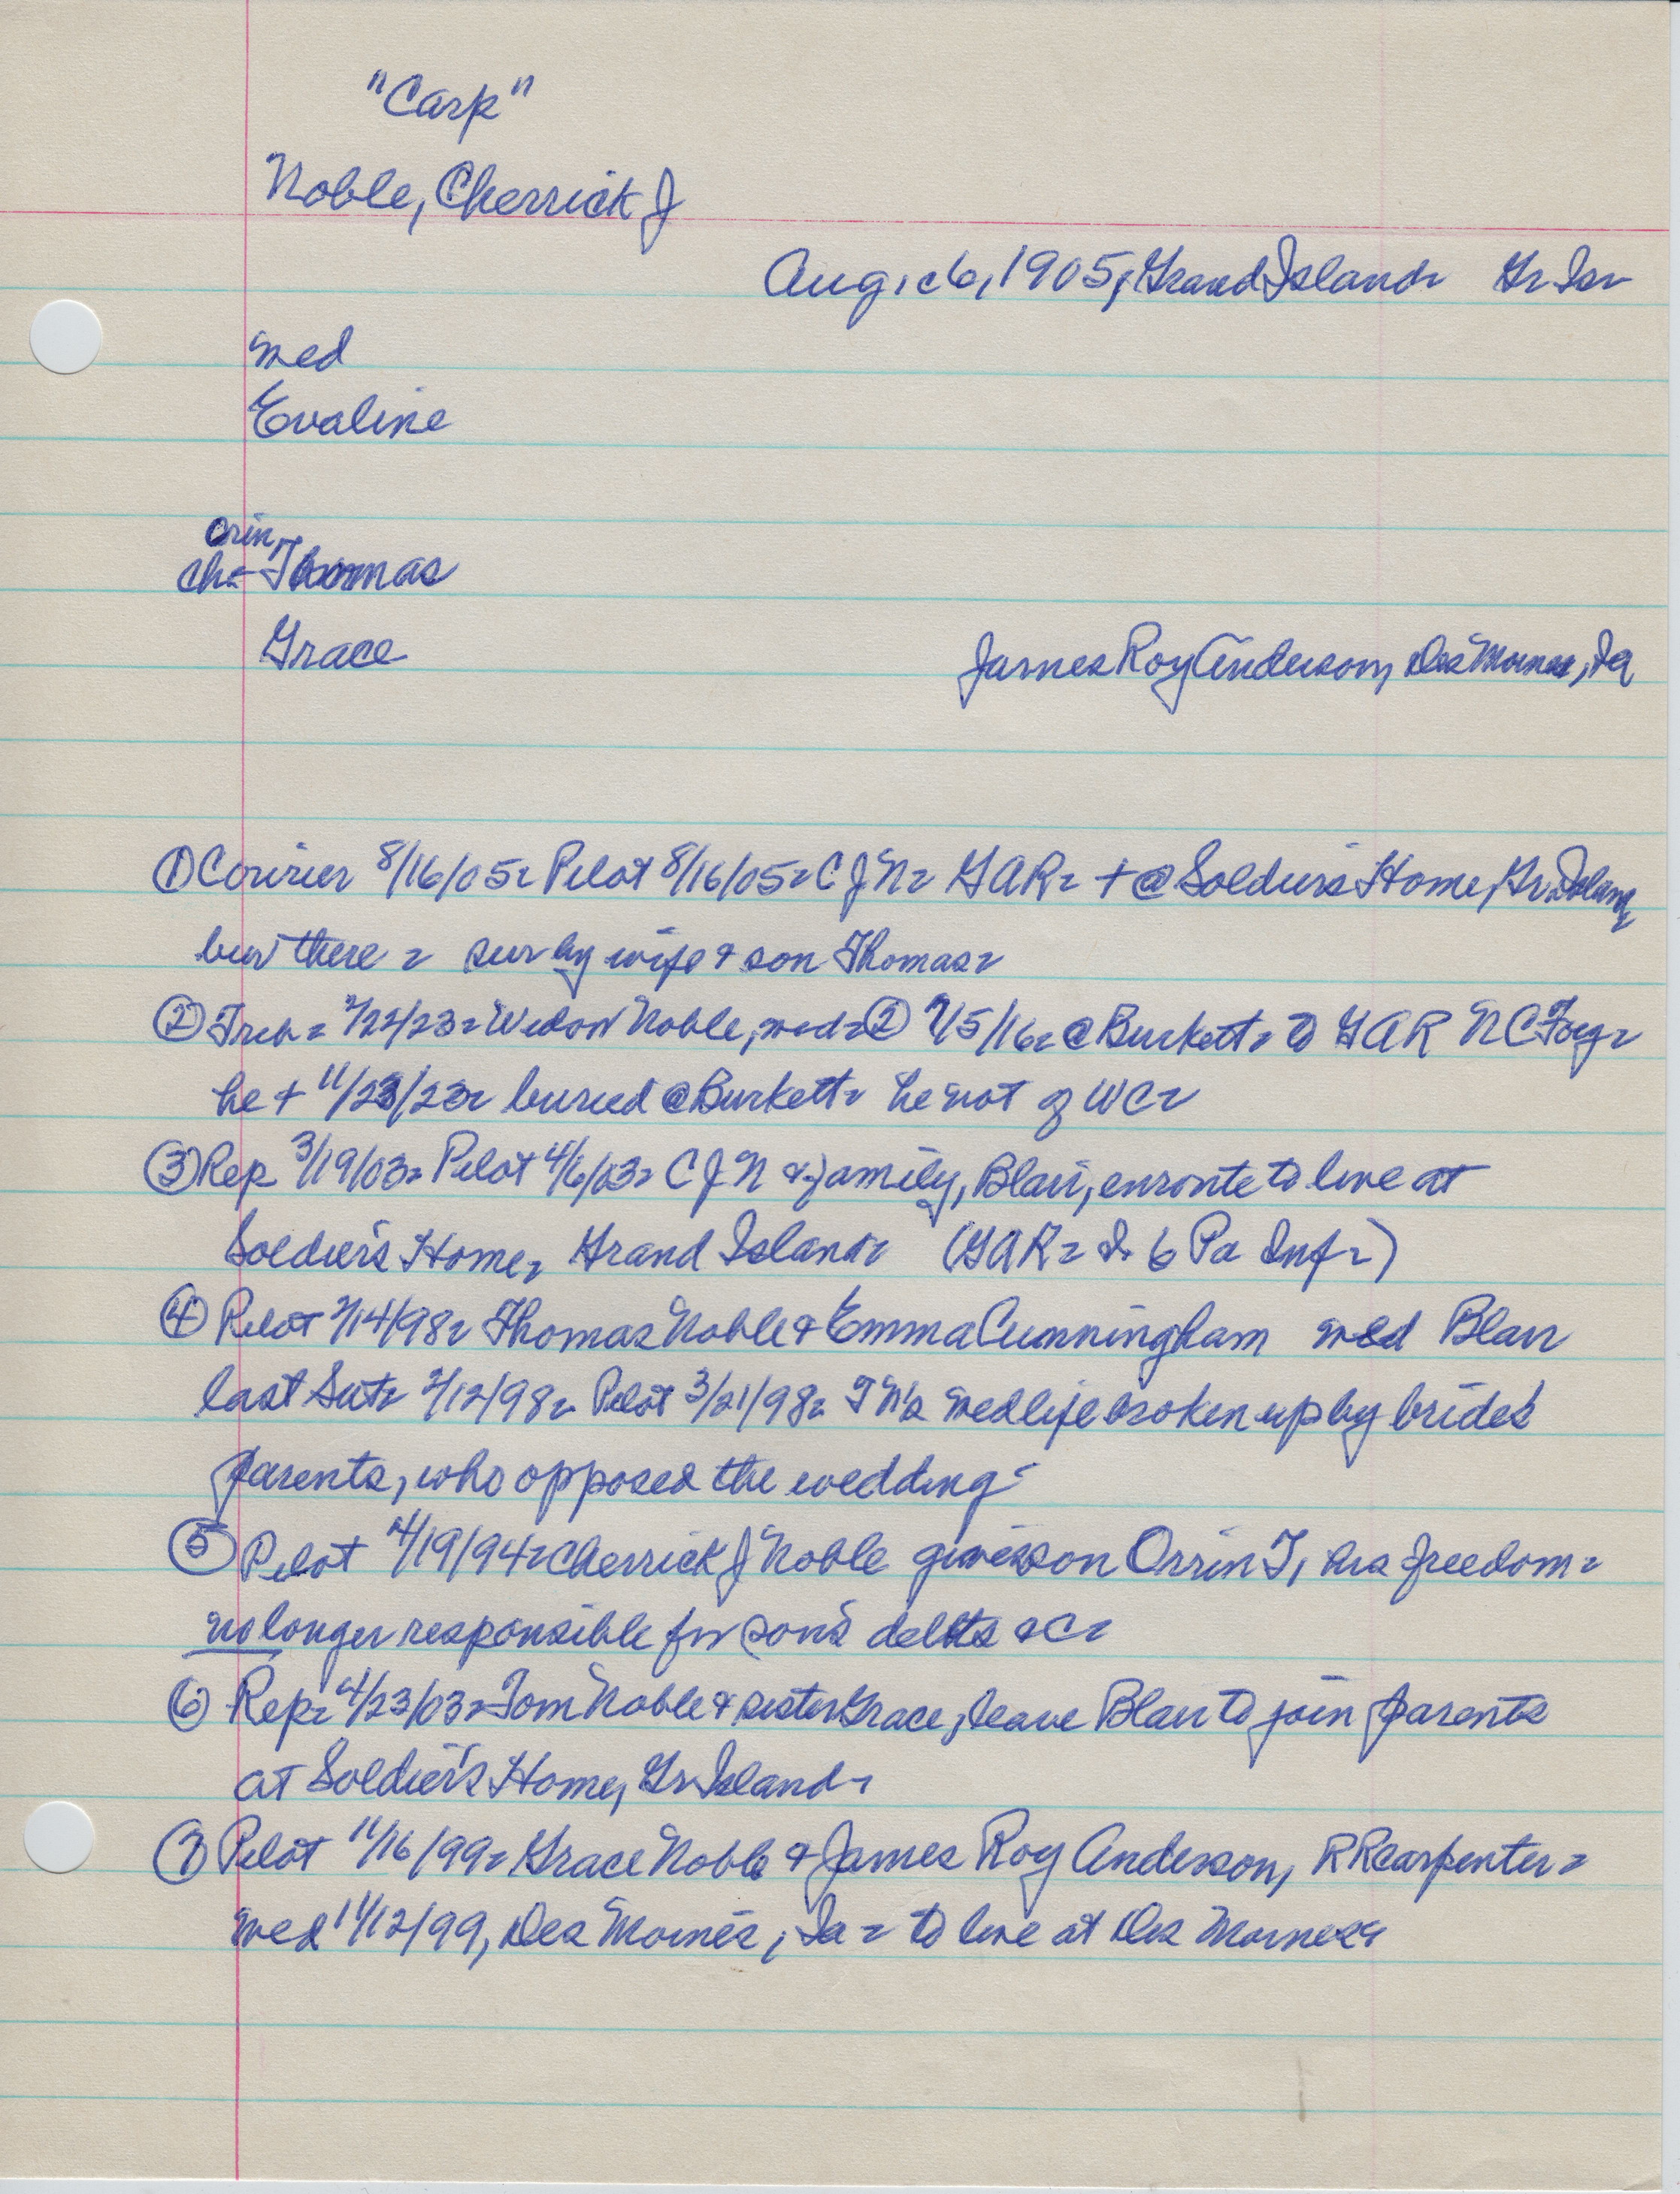 "Carp"
Noble, Cherrick J
Aug. 6, 1905, Grand Island Gr Isr
med
Evaline
Orin,
ch- Thomas
Grace James Roy Anderson, Des Moines, Ia
① Courier 8/16/05- Pilot 8/16/05- C J N- GAR- + @ Soldier's Home, Gr. Island,
bur there - sur by wife & son Thomas-
② Trib- 2/22/23- Widow Noble, med- ② 7/5/16- @ Burkett- to GAR N C Foy-
he + 11/23/23- buried @ Burkett- he not of WC-
③ Rep 3/19/03- Pilot 4/6/03- C J N & family, Blair, enroute to live at
Soldier's Home, Grand Island- (GAR- I- 6 Pa Inf-)
④ Pilot 2/14/98- Thomas Noble & Emma Cunningham med Blair
last Sat- 2/12/98- Pilot 3/21/98- TN's med life broken up by bride's
parents, who opposed the wedding-
⑤ Pilot 4/19/94- Cherrick J Noble gives son Orrin T, his freedom-
no longer responsible for son's debts &C-
⑥ Rep- 4/23/03- Tom Noble & sister Grace, leave Blair to join parents
at Soldier's Home, Gr Island-
⑦ Pilot 11/16/99- Grace Noble & James Roy Anderson, RR carpenter-
med 11/12/99, Des Moines, Ia - to live at Des Moines-